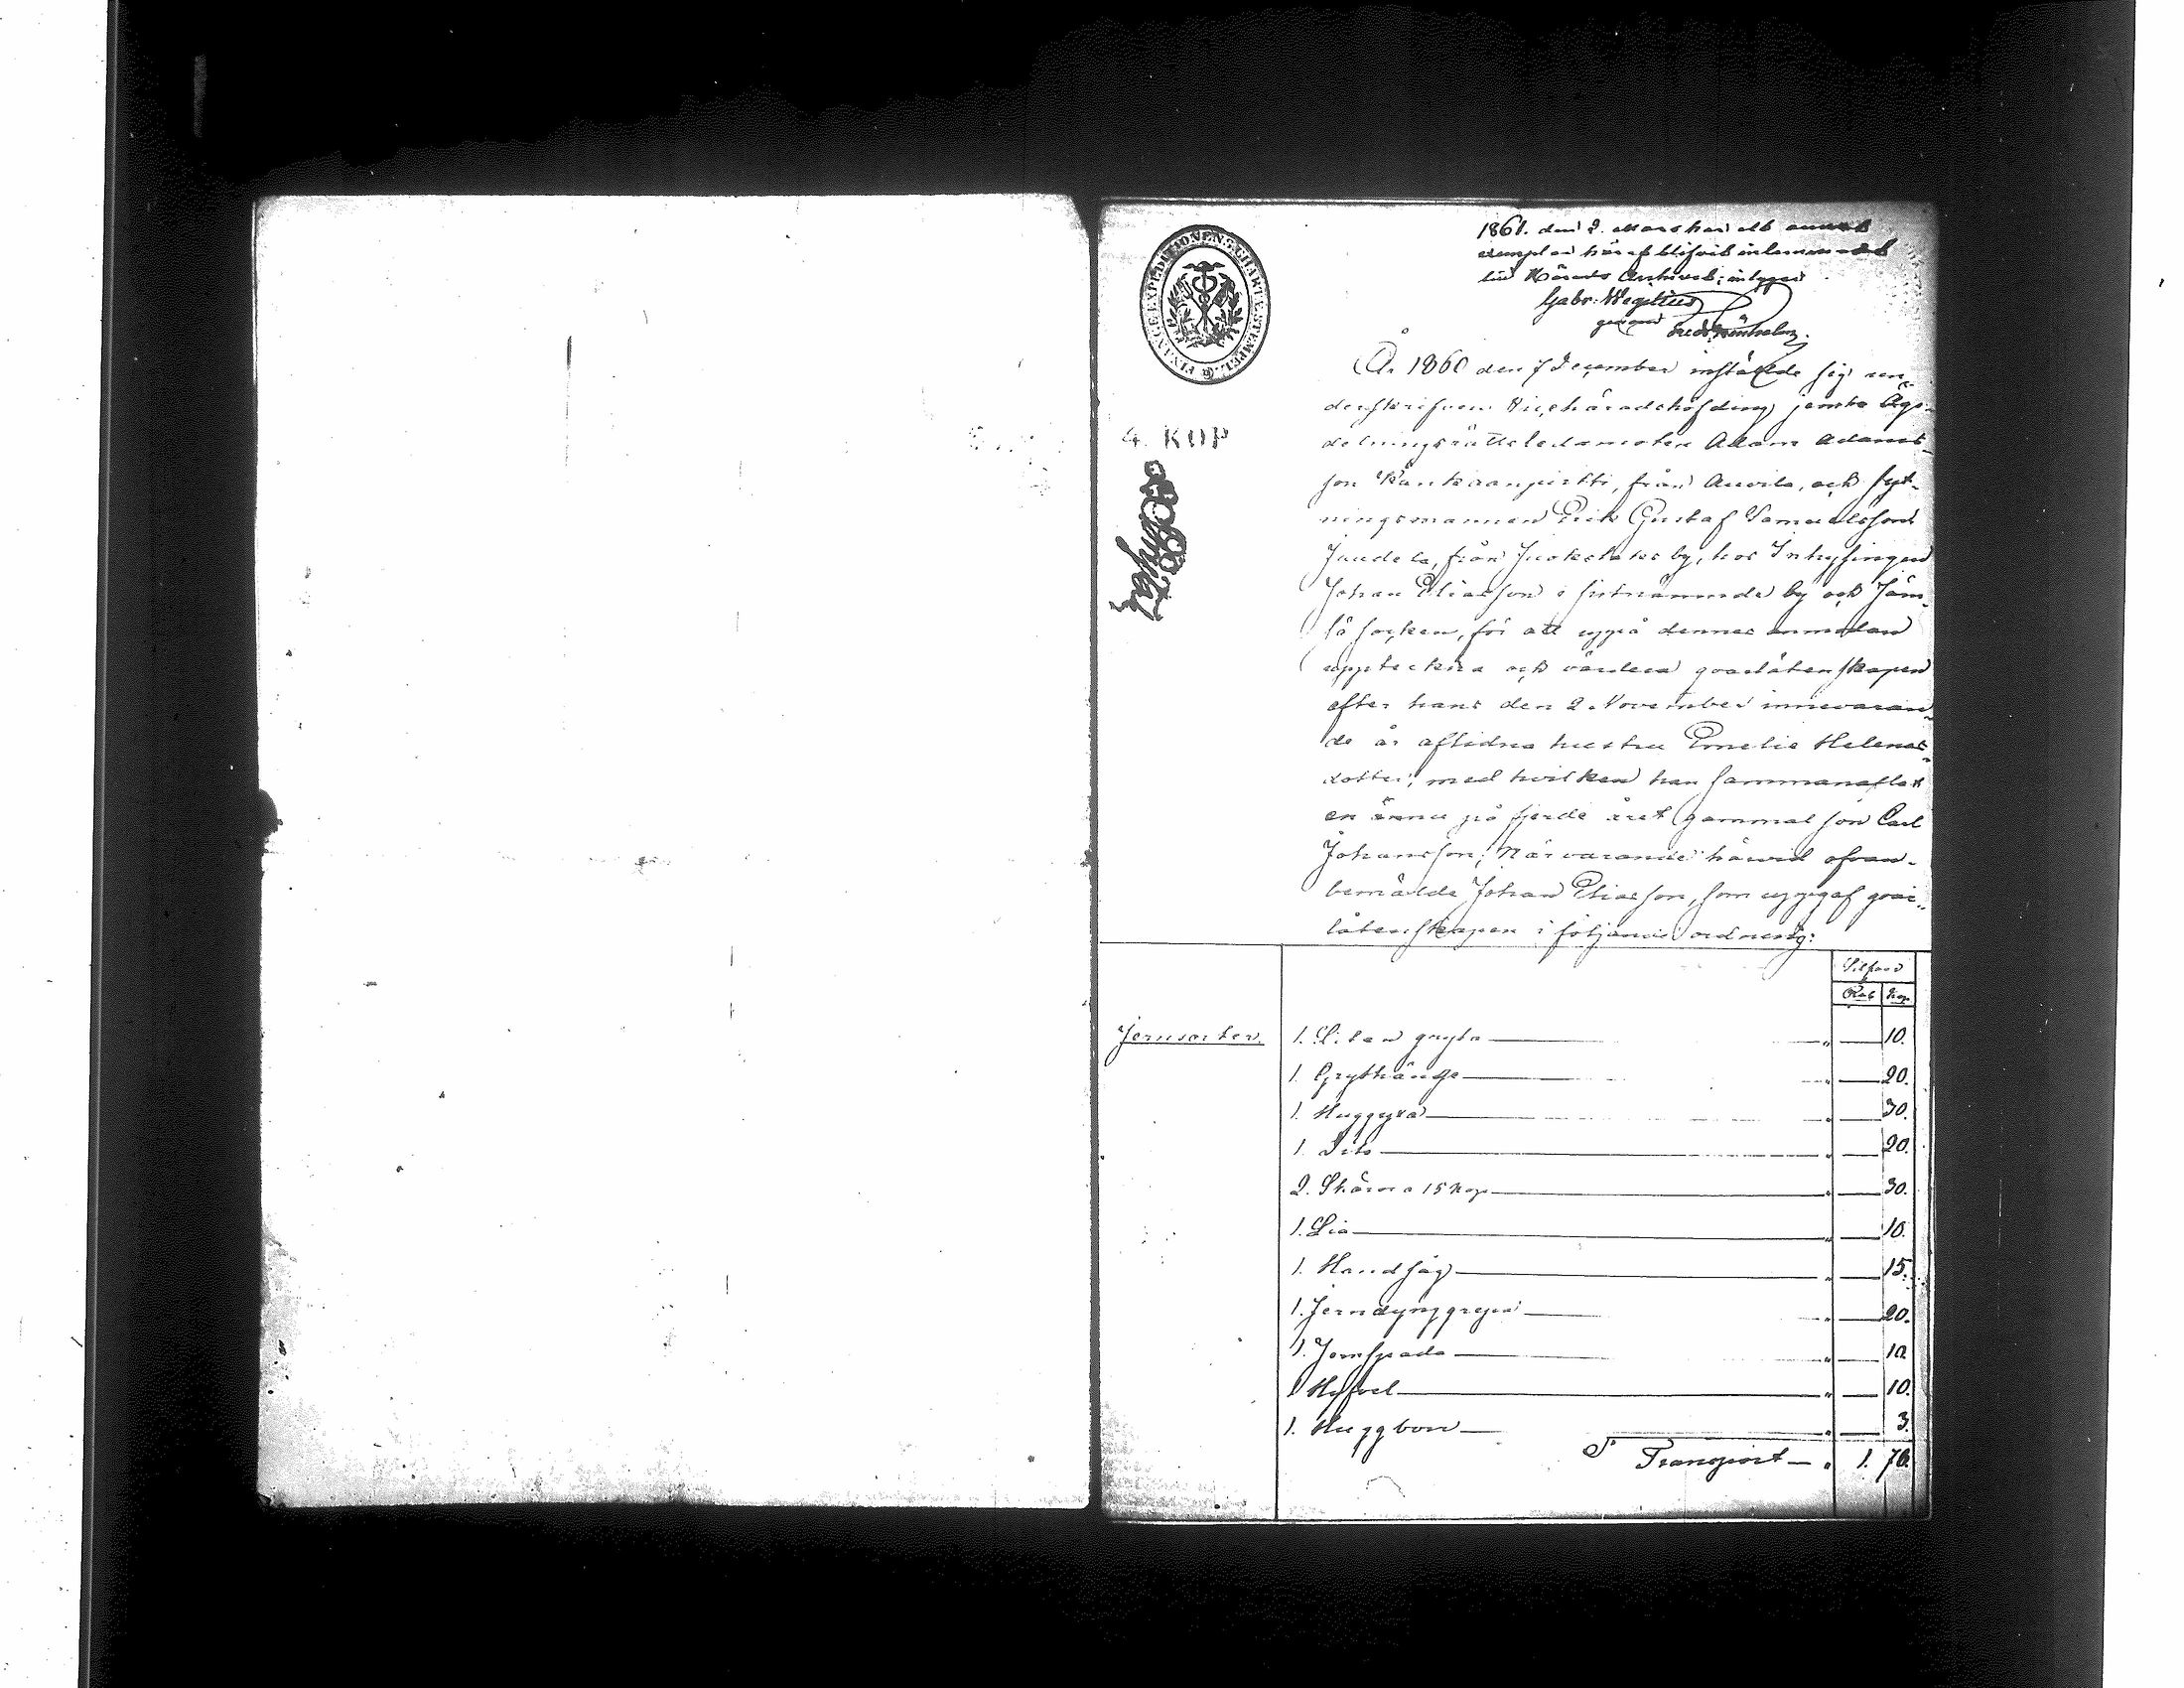 1861. den 2. Mars har ett annat
exemplar häraf blifvit inlemnadt
till Härads Archivet; intygar
Gabr. Wegelius
genom
FINANCE EXPEDITIONENS CHARTÆ STEMPEL
4. KOP
År 1860 den 7 December instälde sig un-
derskrifven Vicehäradshöfding jemte Ägo-
delningsrättsledamoten Adam Adams-
son från Auvila, och syt-
ningsmannen Erik Gustaf Samuelsson
Juudela, från Juokslaks by, hos Inhysingen
Johan Eliasson i sistnämnde by och Jäm-
sä socken, för att uppå dennes anmälan
uppteckna och värdera qvarlåtenskapen
efter hans den 2 November innevaran-
de år aflidna hustru Emelie Helenas-
dotter, med hvilken han sammanaflat
en ännu på fjerde året gammal son Carl
Johansson; Närvarande härvid ofvan-
bemälde Johan Eliasson, som uppgaf qvar-
låtenskapen i följande ordning:
Silfver
Rub Kop
Jernsaker. 1. Liten gryta " 10.
1. Grythänge " 20.
1. Huggyxa " 30.
1. Dito " 20.
2. Skäror a 15 kop " 30.
1. Lia " 10.
1. Handsåg " 15.
1. Jerndynggrepa " 20.
1. Jernspada " 10.
1 Hyfvel " 10.
1. Huggborr " 3.
Transport " 1. 78.